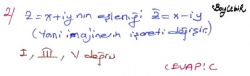 2) z=x+iy nin eşleniği z̄=x-iy
(Yani imajinerin işareti değişir.)
I, III, V doğru
CEVAP: C